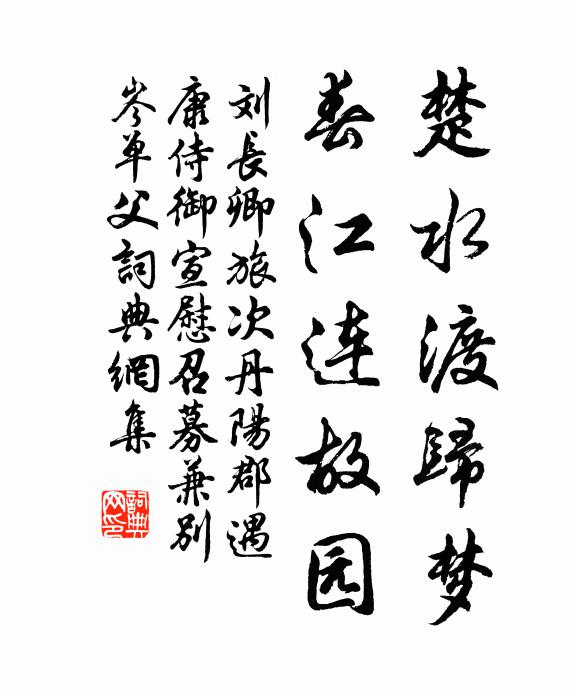 楚水渡歸梦
春江连故园
刘長卿旅次丹陽郡遇
康侍御宣慰召募兼别
岑单父詞典網集
詞典网印